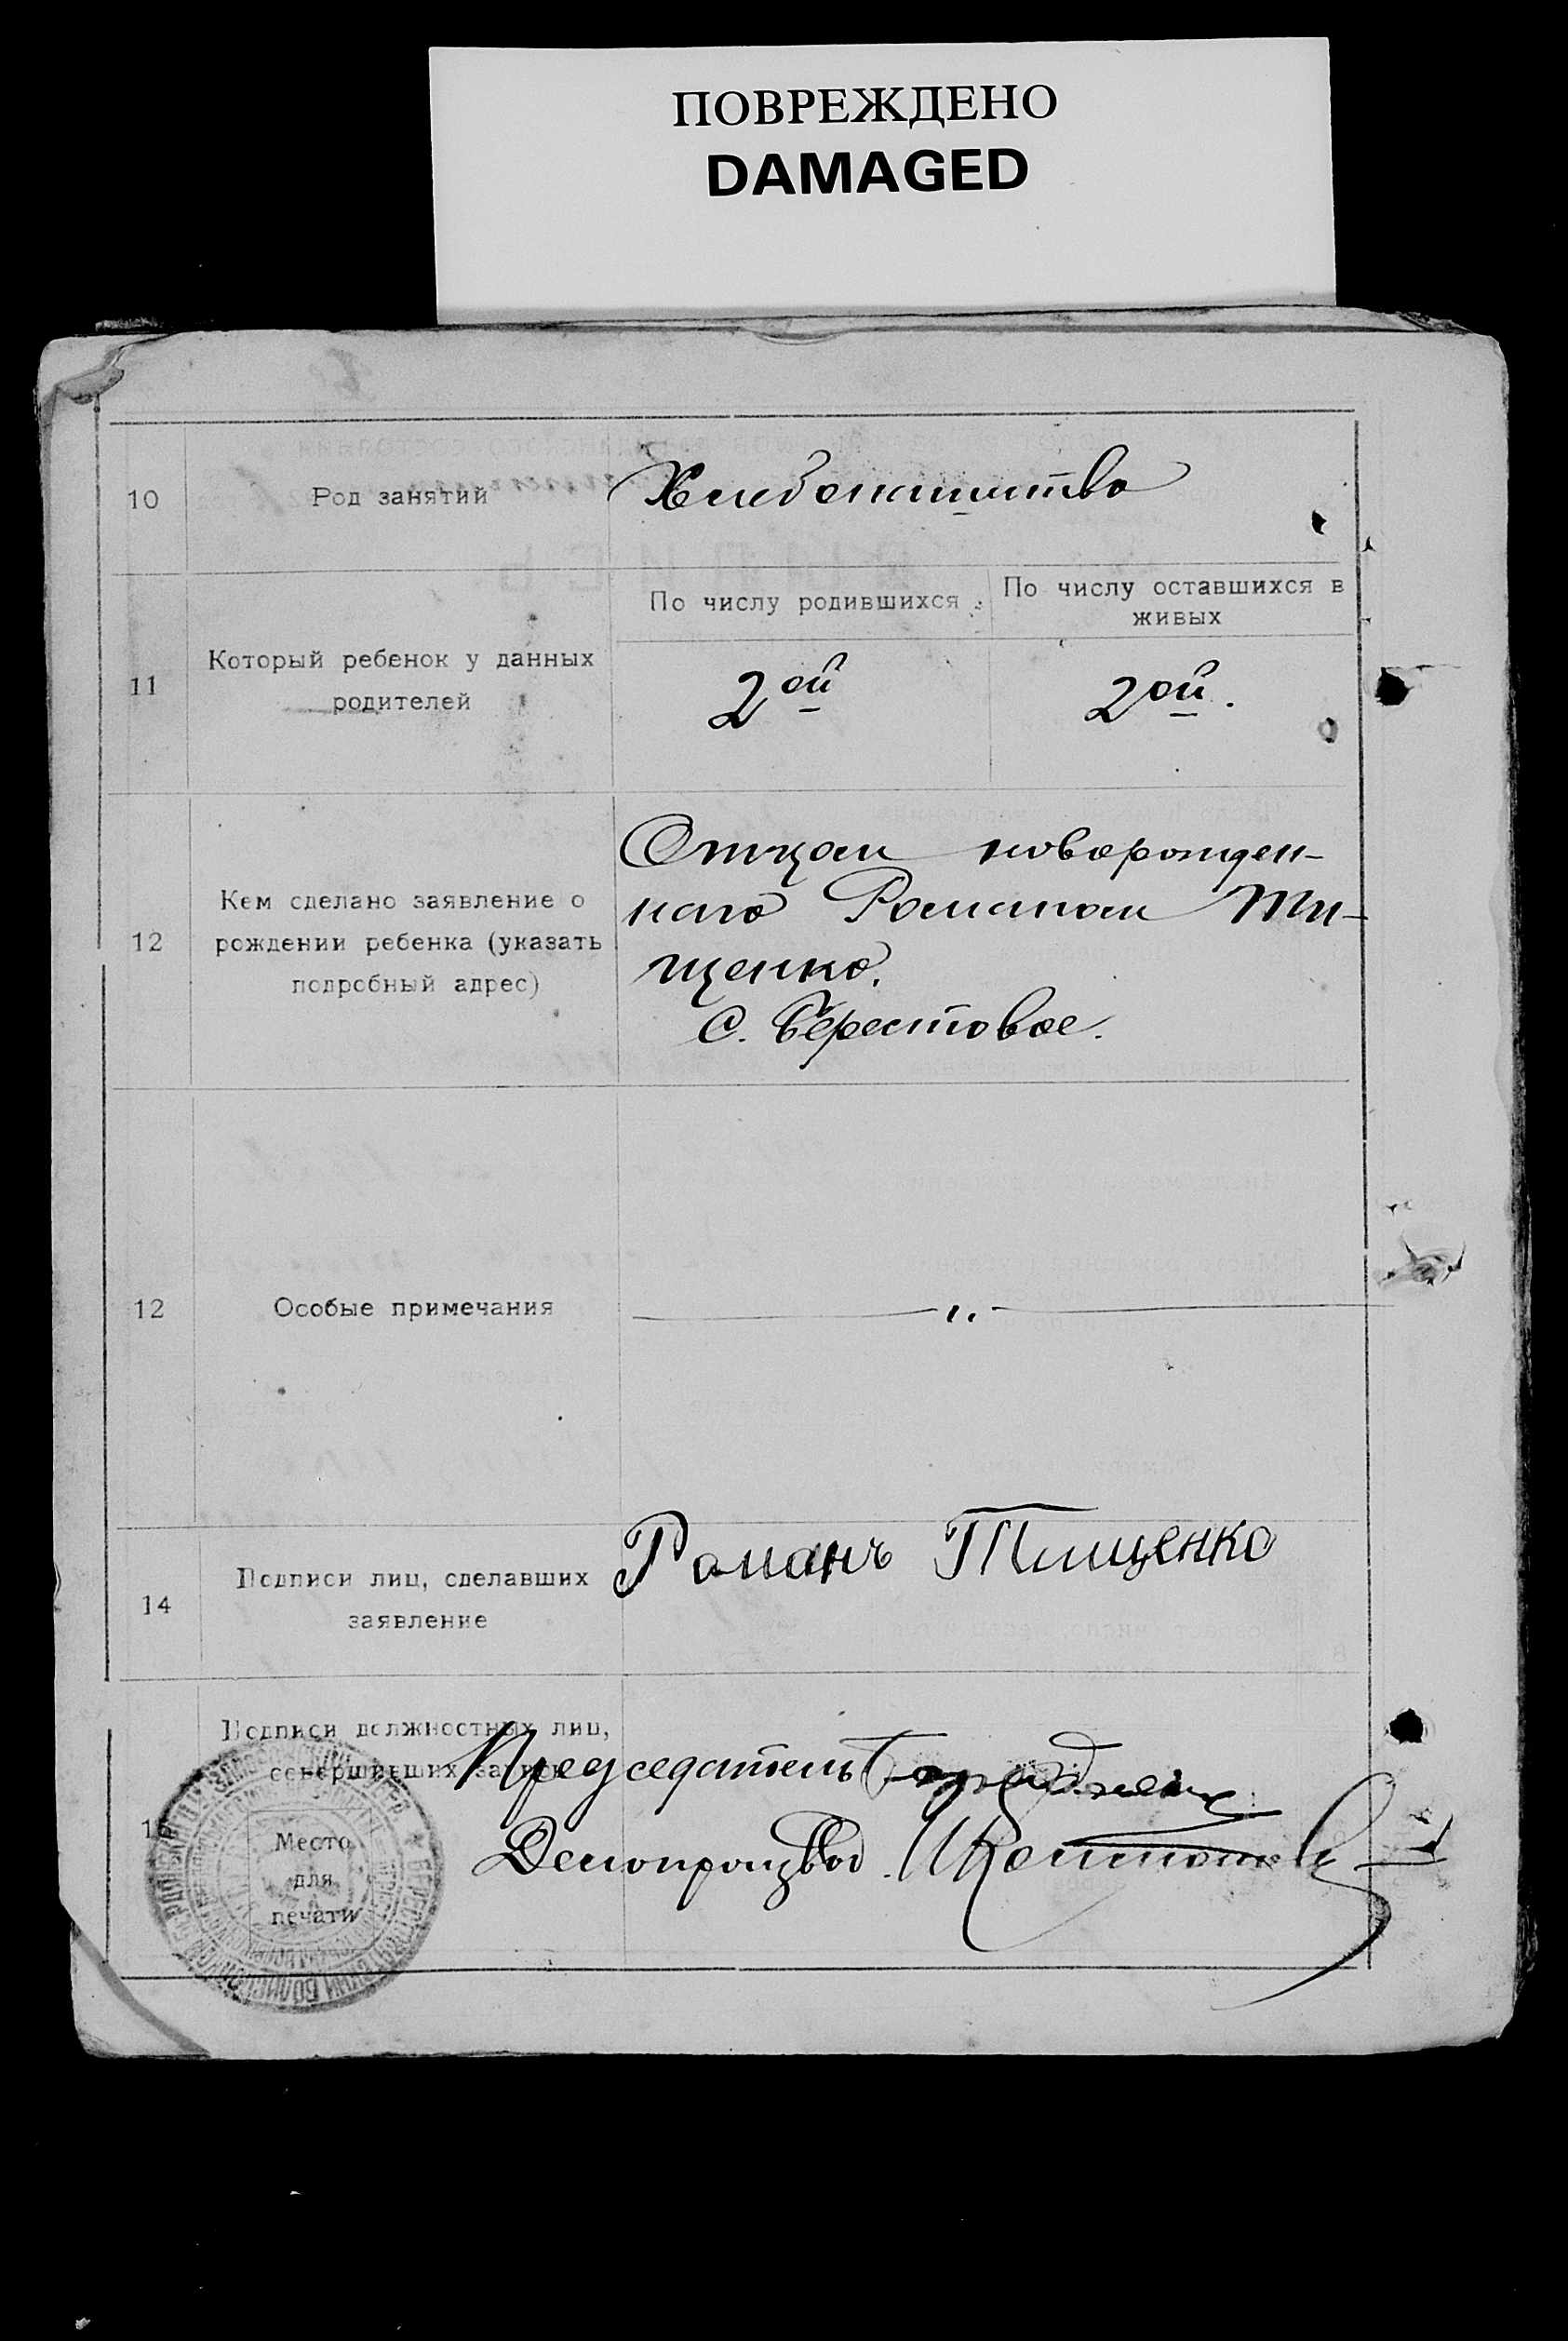 ПОВРЕЖДЕНО
DAMAGED
10
Род занятий
Хлебопашество
11
Который ребенок у данных
родителей
По числу родившихся
По числу оставшихся в
живых
2ой
2ой.
12
Кем сделано заявление о
рождении ребенка (указать
подробный адрес)
Отцом новорожден-
наго Романом Ти-
щенко.
С. Берестовое.
12
Особые примечания
14
Подписи лиц, сделавших
заявление
Романъ Тищенко
Подписи должностных лиц,
совершивших запись
Председатель
Делопроизвод.
Место
для
печати